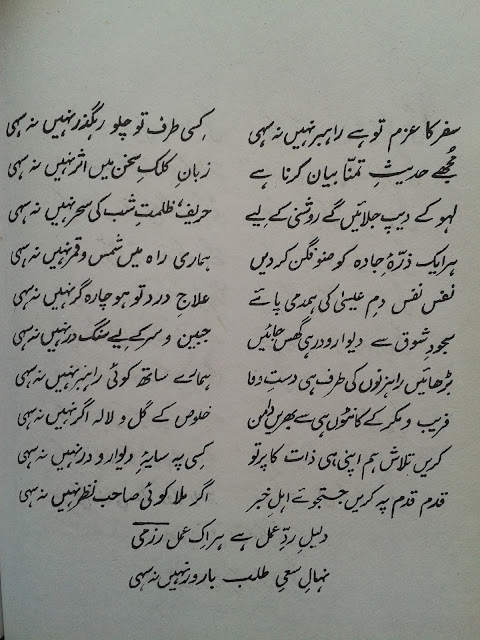 سفر کا عزم تو ہے راہبر نہیں نہ سہی کسی طرف تو چلو رہگذر نہیں نہ سہی
مجھے حدیثِ تمنّا بیان کرنا ہے زبانِ کلکِ سخن میں اثر نہیں نہ سہی
لہو کے دیپ جلائیں گے روشنی کے لیے حریفِ ظلمتِ شب کی سحر نہیں نہ سہی
ہر ایک ذرّۂ جادہ کو ضوفگن کر دیں ہماری راہ میں شمس و قمر نہیں نہ سہی
نفس نفس دمِ عیسیٰ کی ہمدمی پائے علاجِ درد تو ہو چارہ گر نہیں نہ سہی
سجودِ شوق سے دیوار و در ہی گھس جائیں جبین و سر کے لیے سنگِ در نہیں نہ سہی
بڑھائیں راہزنوں کی طرف ہی دستِ وفا ہمارے ساتھ کوئی راہبر نہیں نہ سہی
فریب و مکر کے کانٹوں ہی سے بھریں دامن خلوص کے گل و لالہ اگر نہیں نہ سہی
کریں تلاش ہم اپنی ہی ذات کا پرتو کسی پہ سایۂ دیوار و در نہیں نہ سہی
قدم قدم پہ کریں جستجوئے اہلِ خبر اگر ملا کوئی صاحب نظر نہیں نہ سہی
دلیلِ ردِّ عمل ہے ہر اک عمل رزمی
نہالِ سعیِ طلب بارور نہیں نہ سہی